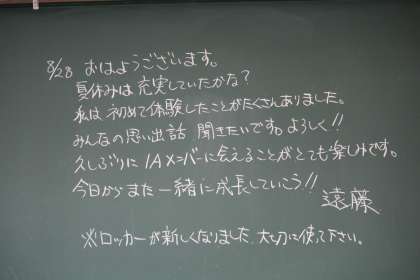 8/28 おはようございます。
夏休みは充実していたかな?
私は初めて体験したことがたくさんありました。
みんなの思い出話 聞きたいです。よろしく!!
久しぶりに1Aメンバーに会えることがとても楽しみです。
今日からまた一緒に成長していこう!!
遠藤
※ロッカーが新しくなりました、大切に使って下さい。